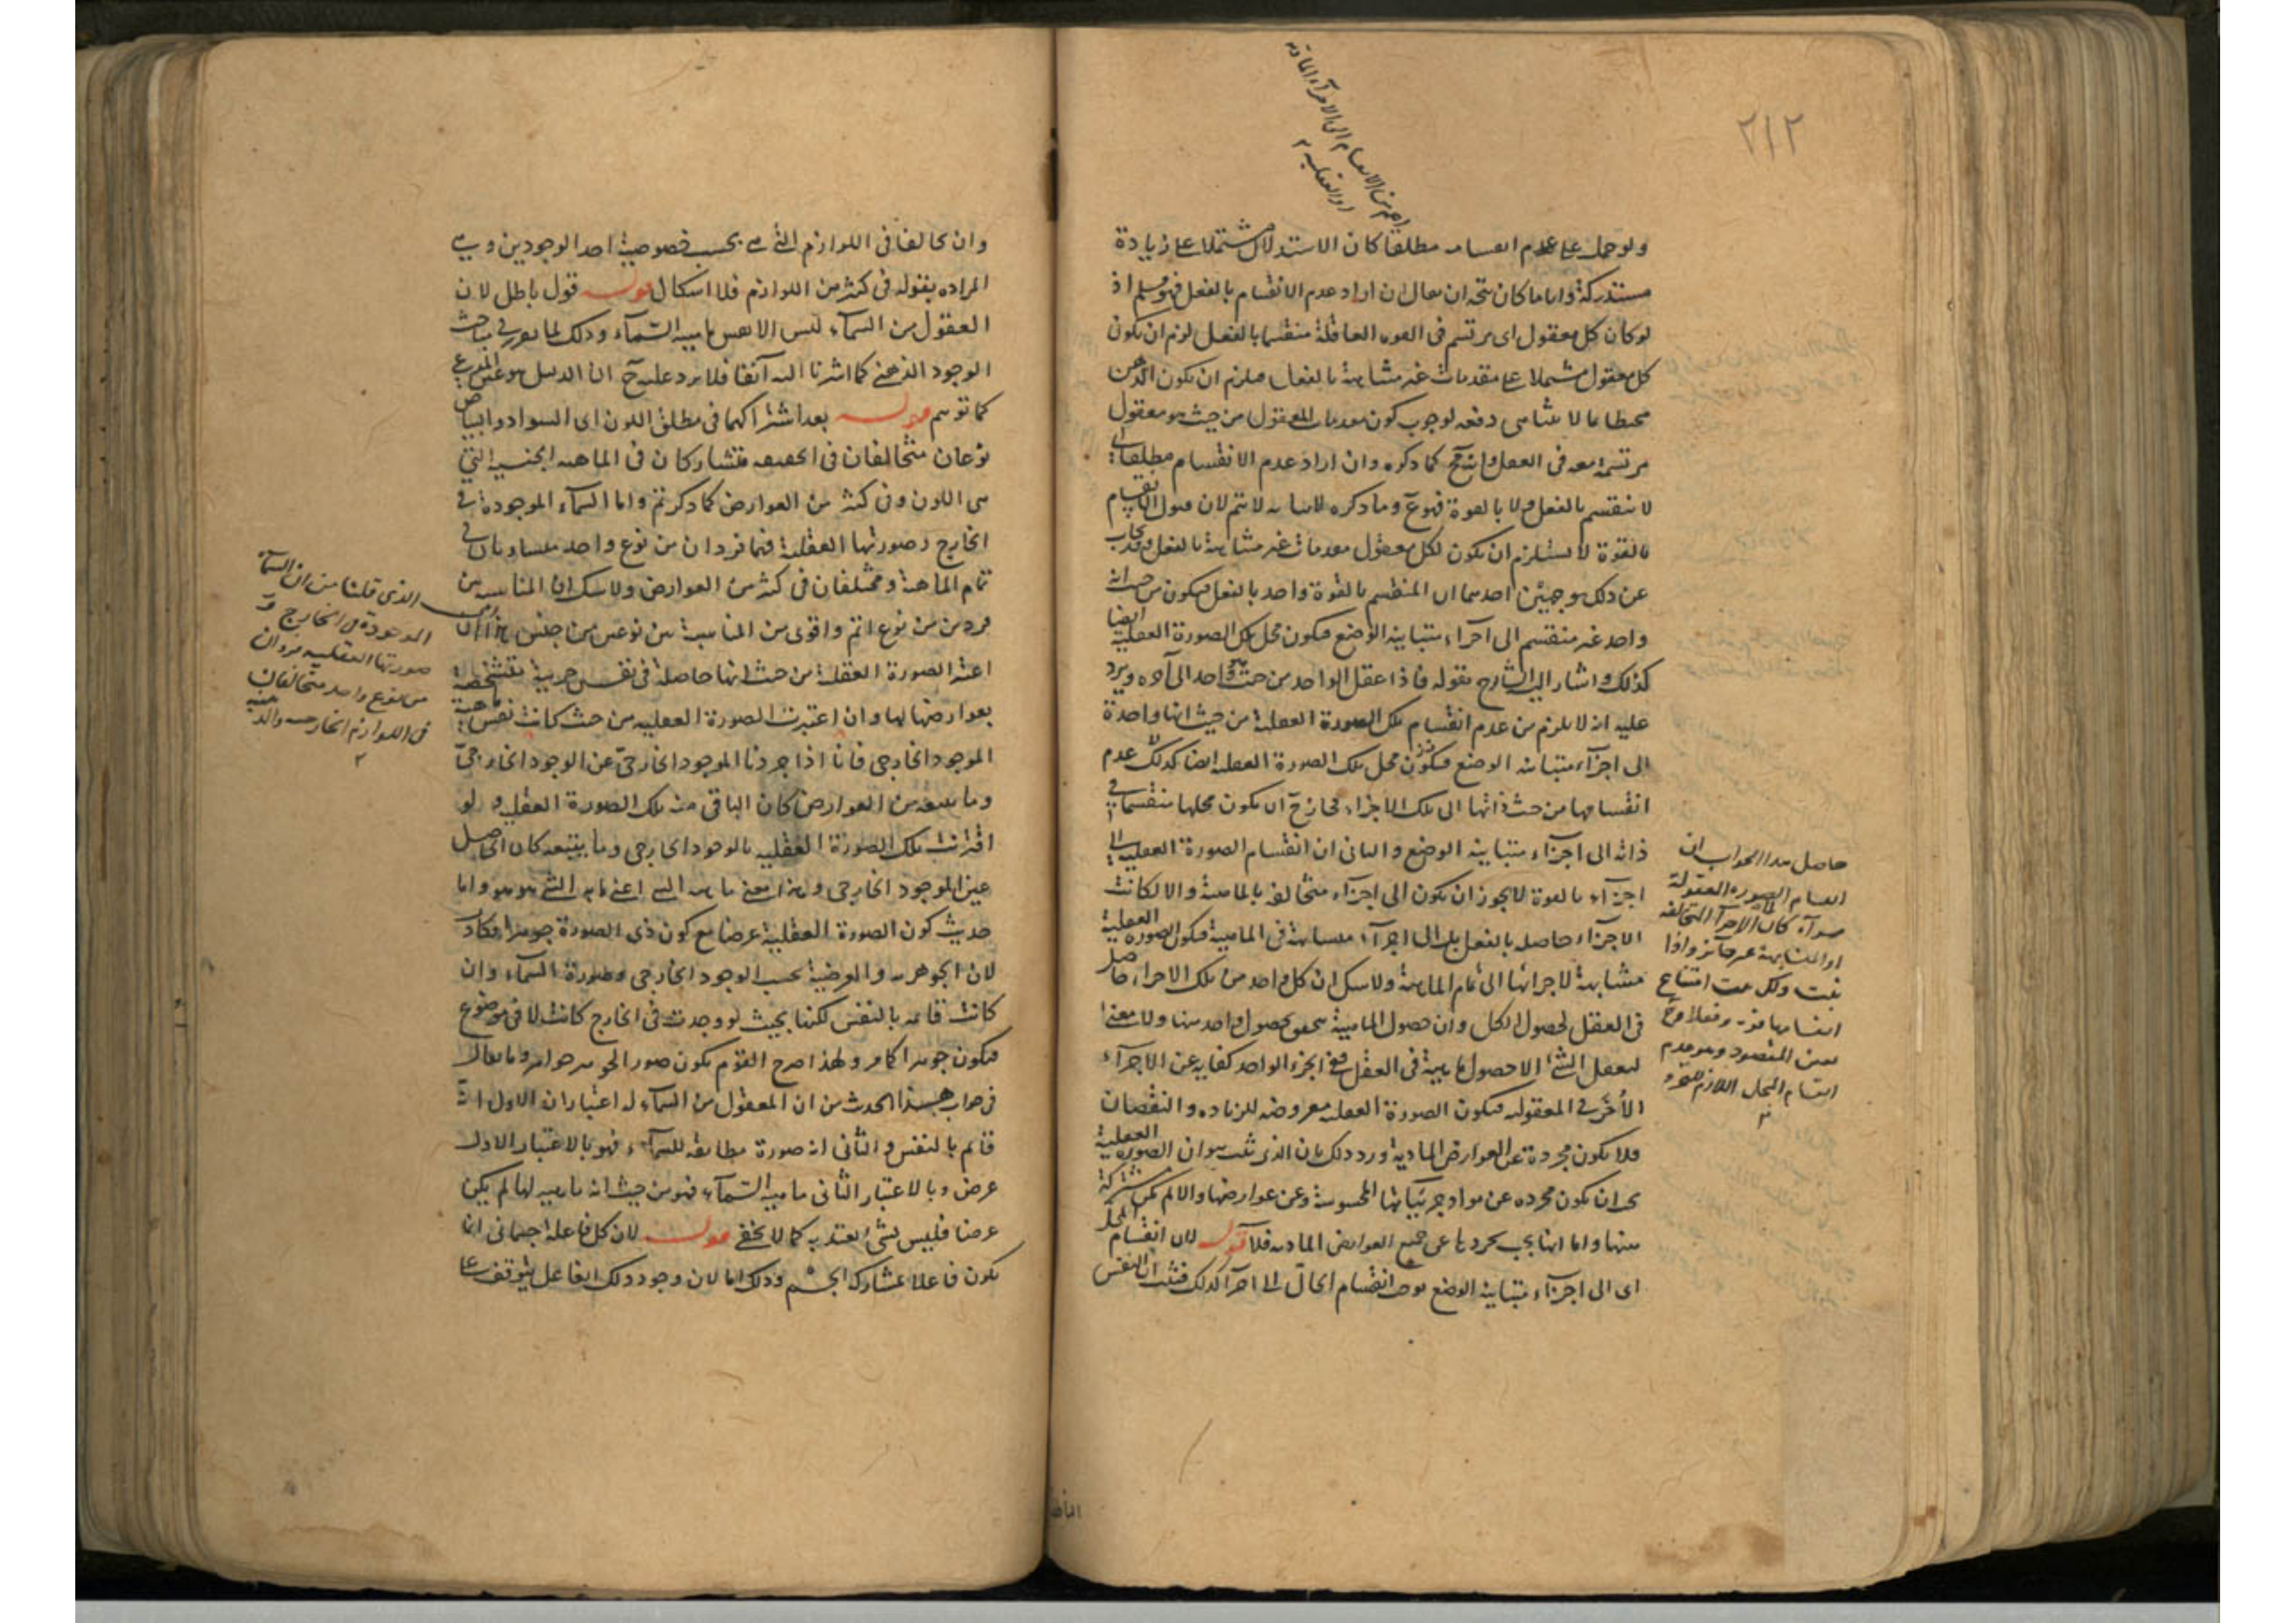 ٢١٢
ولو حمل على عدم انقسامه مطلقا كان الاستدلال مشتملا على زيادة
مستدركة واياما كان يتجه ان يقال ان اراد عدم الانقسام بالفعل فهو مسلم اذ
لو كان كل معقول اى يرتسم فى القوه العاقلة منقسما بالفعل لزم ان يكون
كل معقول مشتملا على مقدمات غير متشابهة بالفعل فيلزم ان يكون الذهن
محيطا بما لا يتناهى دفعه لوجوب كون مقدمات المعقول من حيث هو معقول
مرتسمة معه فى العقل كما ذكره وان اراد عدم الانقسام مطلقا اى
لا ينقسم بالفعل ولا بالقوة فهو مم وما ذكره لاثباته لا يتم لان قبول الانقسام
بالقوة لا يستلزم ان يكون لكل معقول مقدمات غير متشابهة بالفعل وقد يجاب
عن ذلك بوجهين احدهما ان المنقسم بالقوة واحد بالفعل فيكون من حيث انه
واحد غير منقسم الى اجزاء متباينة الوضع فيكون محل تلك الصورة العقلية ايضا
كذلك واشار اليه الشارح بقوله فاذا عقل الواحد من حيث هو واحد الى آخره ويرد
عليه انه لا يلزم من عدم انقسام تلك الصورة العقلية من حيث انها واحدة
الى اجزاء متباينة الوضع فيكون محل تلك الصورة العقليه ايضا كذلك عدم
انقسامها من حيث ذاتها الى تلك الاجزاء فجاز ح ان يكون محلها منقسما فى
ذاته الى اجزاء متباينه الوضع والثانى ان انقسام الصورة العقلية الى
اجزاء بالقوة لا يجوز ان يكون الى اجزاء متخالفه بالماهية والا لكانت
الاجزاء حاصله بالفعل بل الى اجزاء متشابهة فى الماهية فيكون الصوره العقلية
مشابهة لاجزائها الى تمام الماهية ولا شك ان كل واحد من تلك الاجزاء حاصل
فى العقل لحصول الكل وان حصول الماهية يتحقق بحصول واحد منها ولا معنى
لتعقل الشئ الا حصول ماهية فى العقل ففى الجزء الواحد كفاية عن الاجزاء
الأُخَر فى المعقوليه فيكون الصورة العقليه معروضه للزياده والنقصان
فلا يكون مجردة عن العوارض المادية ورد ذلك بان الذى ثبت هو ان الصوره العقلية
يجب ان يكون مجرده عن مواد جزئياتها المحسوسة وعن عوارضها والا لم يكن مشتركة
بينها واما انها يجب تجردها عن جميع العوارض الماديه فلا قوله لان انقسام المحل
اى الى اجزاء متباينه الوضع يوجب انقسام الحالّ الى اجزاء كذلك فثبت ان النفس
حاصل هذا الجواب ان
انقسام الصوره المعقولة
سواء كان الى الاجزاء المتخالفه
او المتشابهة غير جائز واذا
ثبت ذلك ثبت امتناع
انقسامها قوة وفعلا وح
يتبين المقصود وهو عدم
انقسام المحل اللازم للتجرد
وان تخالفا فى اللوازم التى هى بحسب خصوصية احد الوجودين وهى
المراده بقوله فى كثير من اللوازم فلا اشكال قوله قول باطل لان
المعقول من السماء ليس الا نفس ماهية السّماء وذلك لما تقرر فى مباحث
الوجود الذهنى كما اشرنا اليه آنفا فلا يرد عليه ح ان الدليل هو عين المدعى
كما توهم قوله بعد اشتراكهما فى مطلق اللون اى السواد والبياض
نوعان متخالفان فى الحقيقه متشاركان فى الماهيه الجنسية التى
هى اللون وفى كثير من العوارض كما ذكرتم واما السماء الموجودة فى
الخارج وصورتها العقلية فهما فردان من نوع واحد متساويان فى
تمام الماهية ومختلفان فى كثير من العوارض ولا شك ان المناسبه بين
فردين من نوع اتم واقوى من المناسبة بين نوعين من جنس هذا ان
اعتبر الصورة العقلية من حيث انها حاصلة فى نفس جزئية متشخصة
بعوارضها لها وان اعتبرت الصورة العقليه من حيث كانت نفس ماهية
الموجود الخارجى فانا اذا جردنا الموجود الخارجىّ عن الوجود الخارجىّ
وما يتبعه من العوارض كان الباقى منه تلك الصورة العقلية ولو
اقترنت تلك الصورة العقليه بالوجود الخارجى وما يتبعه كان الحاصل
عين الموجود الخارجى وهذا معنى ماهية الشئ اعنى ما به الشئ هو هو واما
حديث كون الصورة العقلية عرضا مع كون ذى الصورة جوهرا فكاذب
لان الجوهريه والعرضية بحسب الوجود الخارجى وصورة السماء وان
كانت قائمه بالنفس لكنها بحيث لو وجدت فى الخارج كانت لا فى موضوع
فيكون جوهرا كما مر ولهذا صرح القوم بكون صور الجوهر جواهر وما يقال
فى جواب هذا الحدث من ان المعقول من السماء له اعتباران الاول انه
قائم بالنفس والثانى انه صورة مطابقه للسماء فهو بالاعتبار الاول
عرض وبالاعتبار الثانى ماهية السّماء فهو من حيث انه ماهيه لها لم يكن
عرضا فليس بشئ يعتد به كما لا يخفى قوله لان كل فاعله جسمانى انما
يكون فاعلا بمشاركة الجسم وذلك اما لان وجود ذلك الفاعل يتوقف على
الذى قلنا من ان السماء
الموجودة فى الخارج و
صورتها العقليه فردان
من نوع واحد متخالفان
فى اللوازم الخارجيه والذهنية